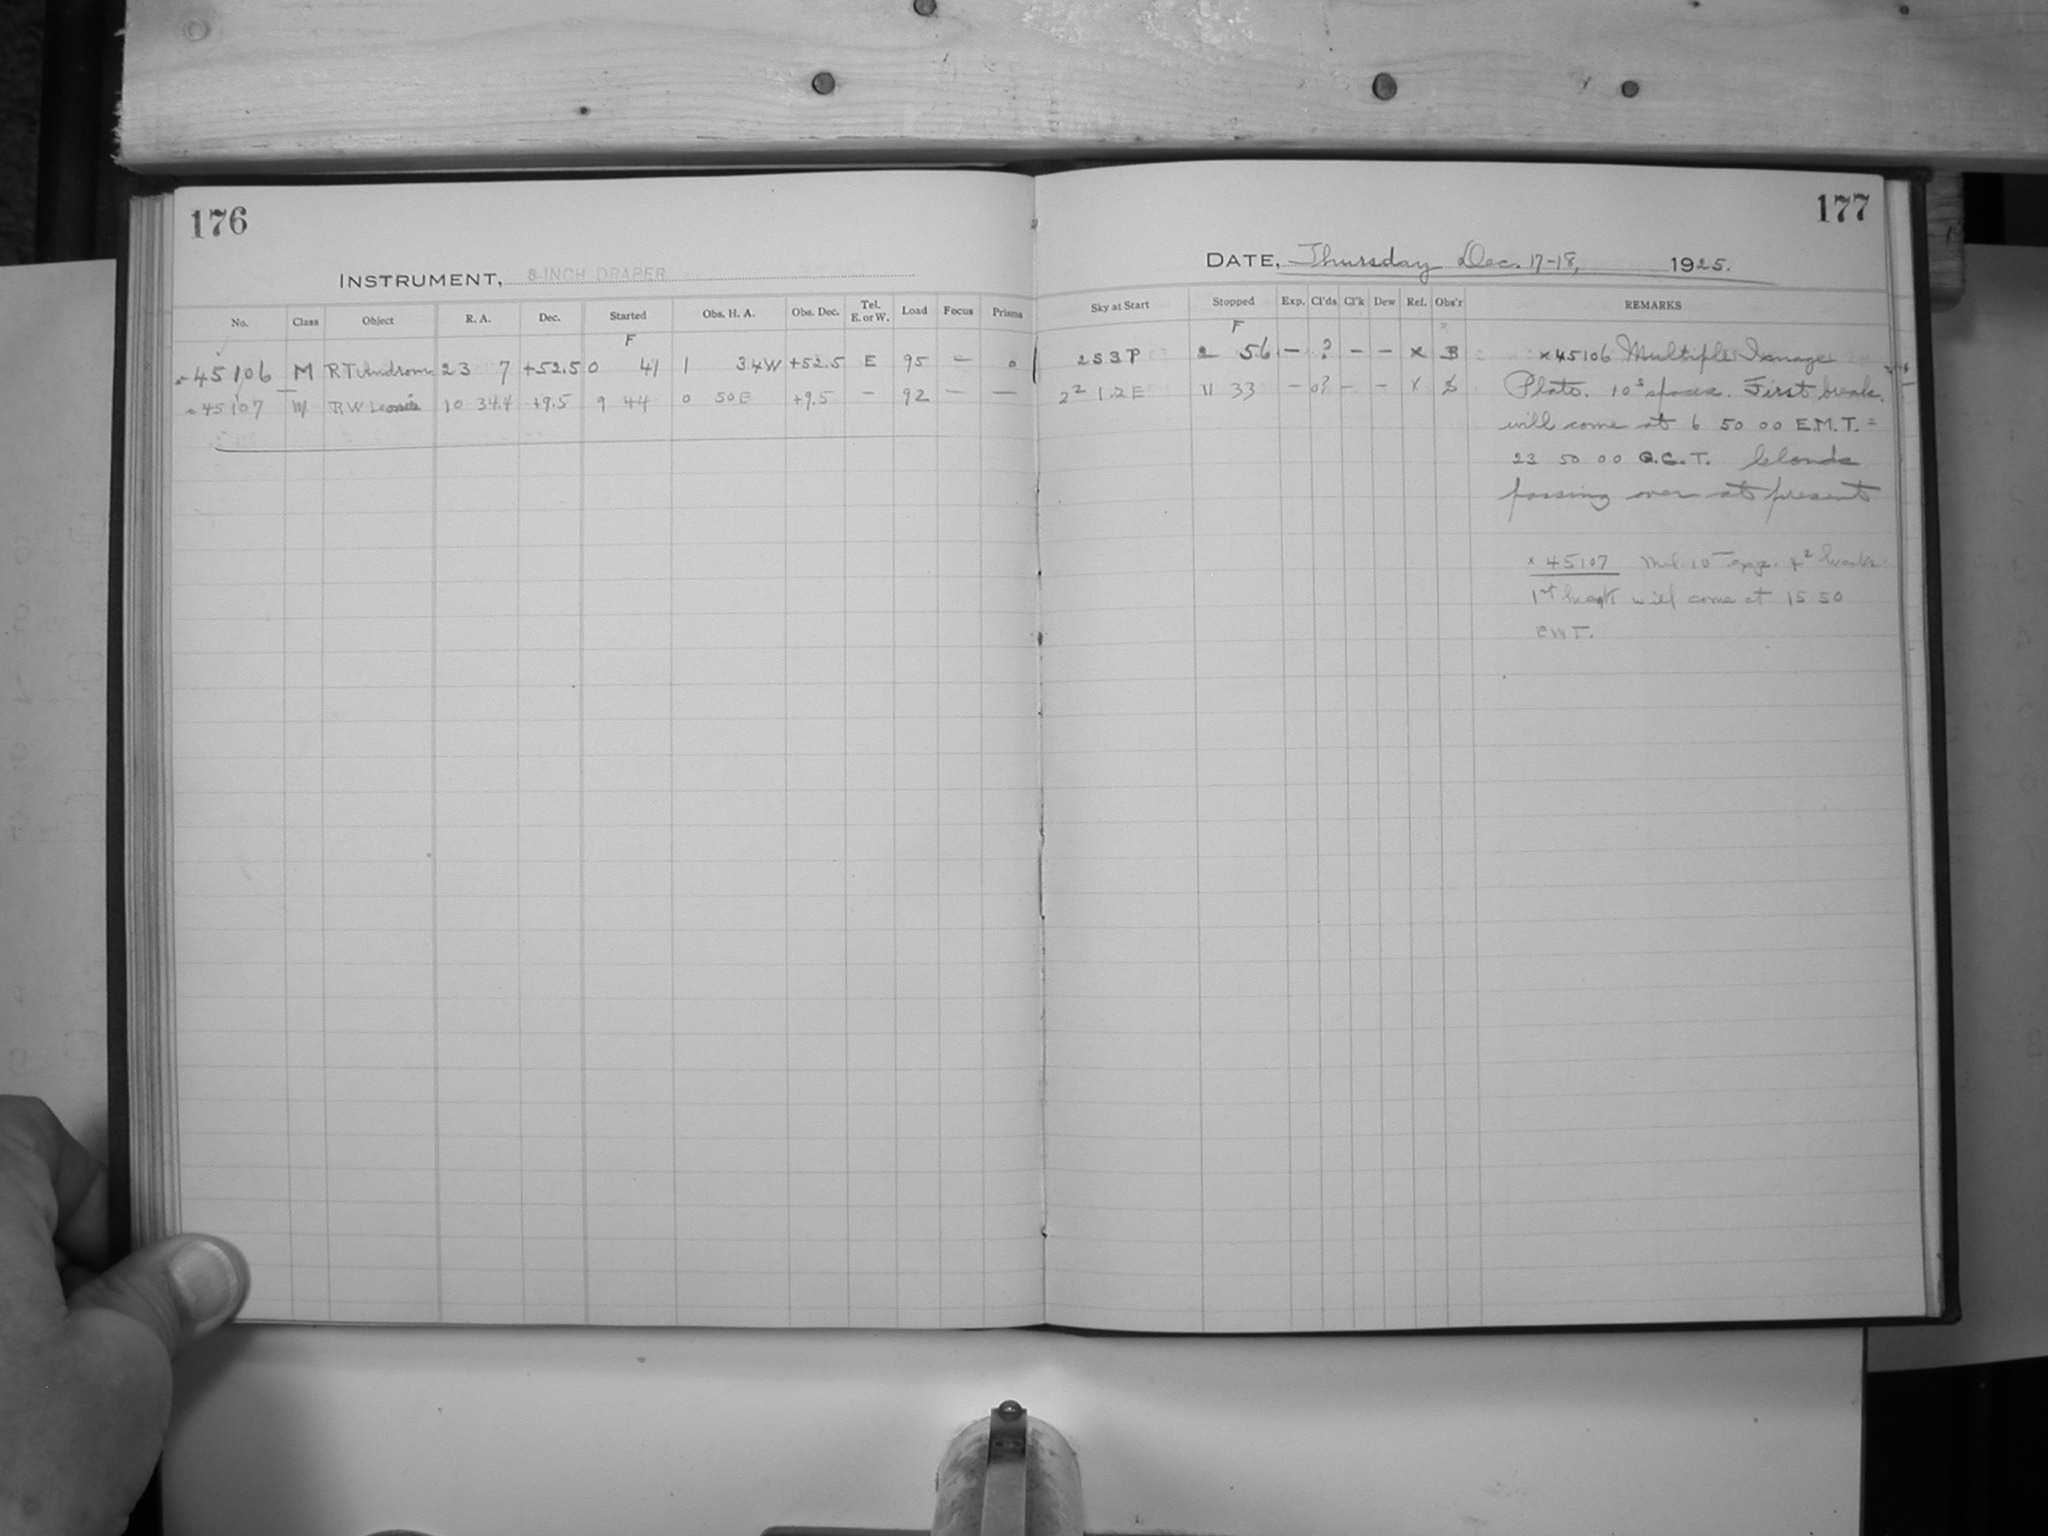 176
INSTRUMENT, 8-INCH DRAPER
No. Class Object R. A. Dec. Started Obs. H. A. Obs. Dec. Tel. E. or W. Load Focus Prisms
F
45106 M RT Androm 23 7 +52.5 0 41 1 34W +52.5 E 95 – 0
45107 M RW Leonis 10 34.4 +9.5 9 44 0 50E +9.5 – 92 — —
177
DATE, Thursday Dec. 17-18, 1925.
Sky at Start Stopped Exp. Cl'ds Cl'k Dew Ref. Obs'r REMARKS
F
2 S 3 P 2 56 – ? – – x B
2² 1.2 E 11 33 – 0? – – x
x45106 Multiple Image
Plate. 10ˢ spaces. First break
will come at 6 50 00 E.M.T. =
23 50 00 G.C.T. Clouds
passing over at present
x 45107 10 exp. breaks
1st break will come at 15 50
EMT.